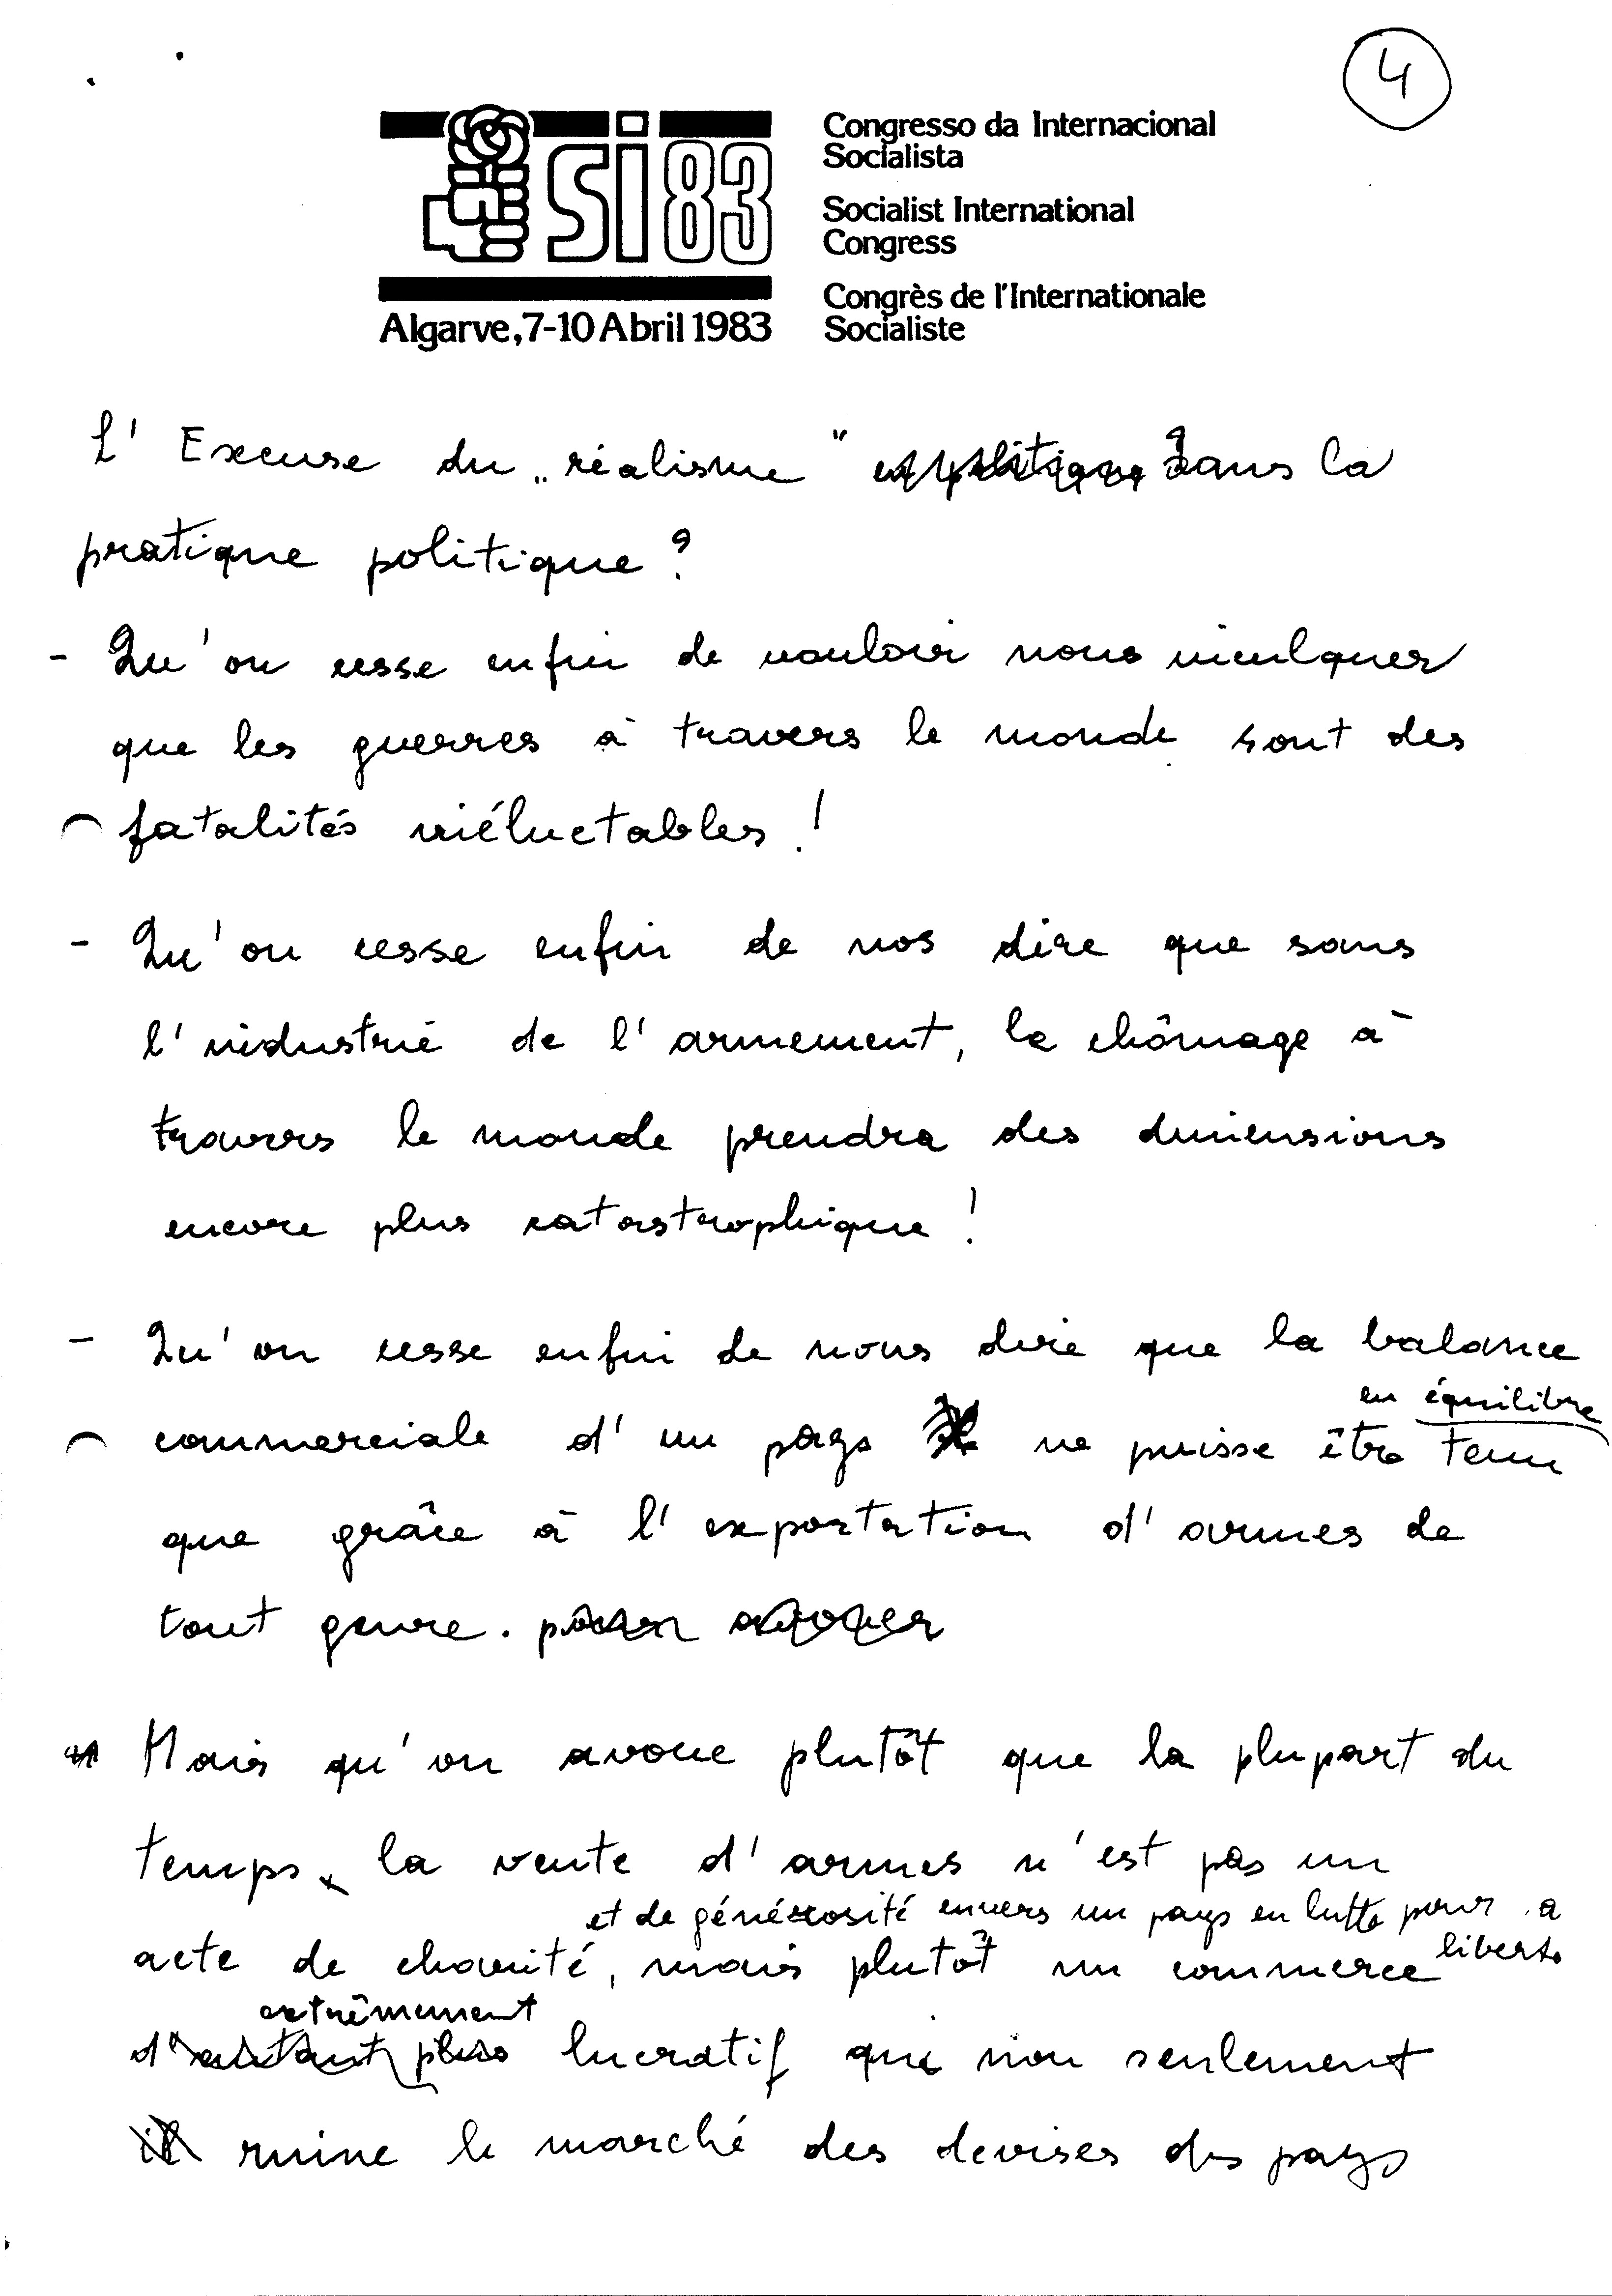 4
SI 83
Algarve, 7-10 Abril 1983
Congresso da Internacional
Socialista
Socialist International
Congress
Congrès de l'Internationale
Socialiste
L'Excuse du „réalisme" dans la
pratique politique?
- Qu'on cesse enfin de vouloir nous inculquer
que les guerres à travers le monde sont des
fatalités inéluctables!
- Qu'on cesse enfin de nos dire que sans
l'industrie de l'armement, le chômage à
travers le monde prendra des dimensions
encore plus catastrophique!
- Qu'on cesse enfin de nous dire que la balance
en équilibre
commerciale d'un pays ne puisse être tenu
que grâce à l'exportation d'armes de
tout genre.
Mais qu'on avoue plutôt que la plupart du
temps, la vente d'armes n'est pas un
et de générosité envers un pays en lutte pour la
liberté
acte de charité, mais plutôt un commerce
extrêmement
d'autant plus lucratif qui non seulement
il ruine le marché des devises des pays